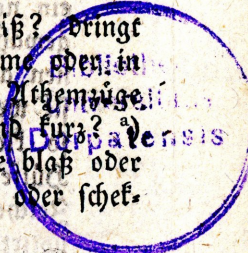 iß? dringt
me oder in
Athemzüge
kurz? a)
blaß oder
oder schek-
Dorpatensis